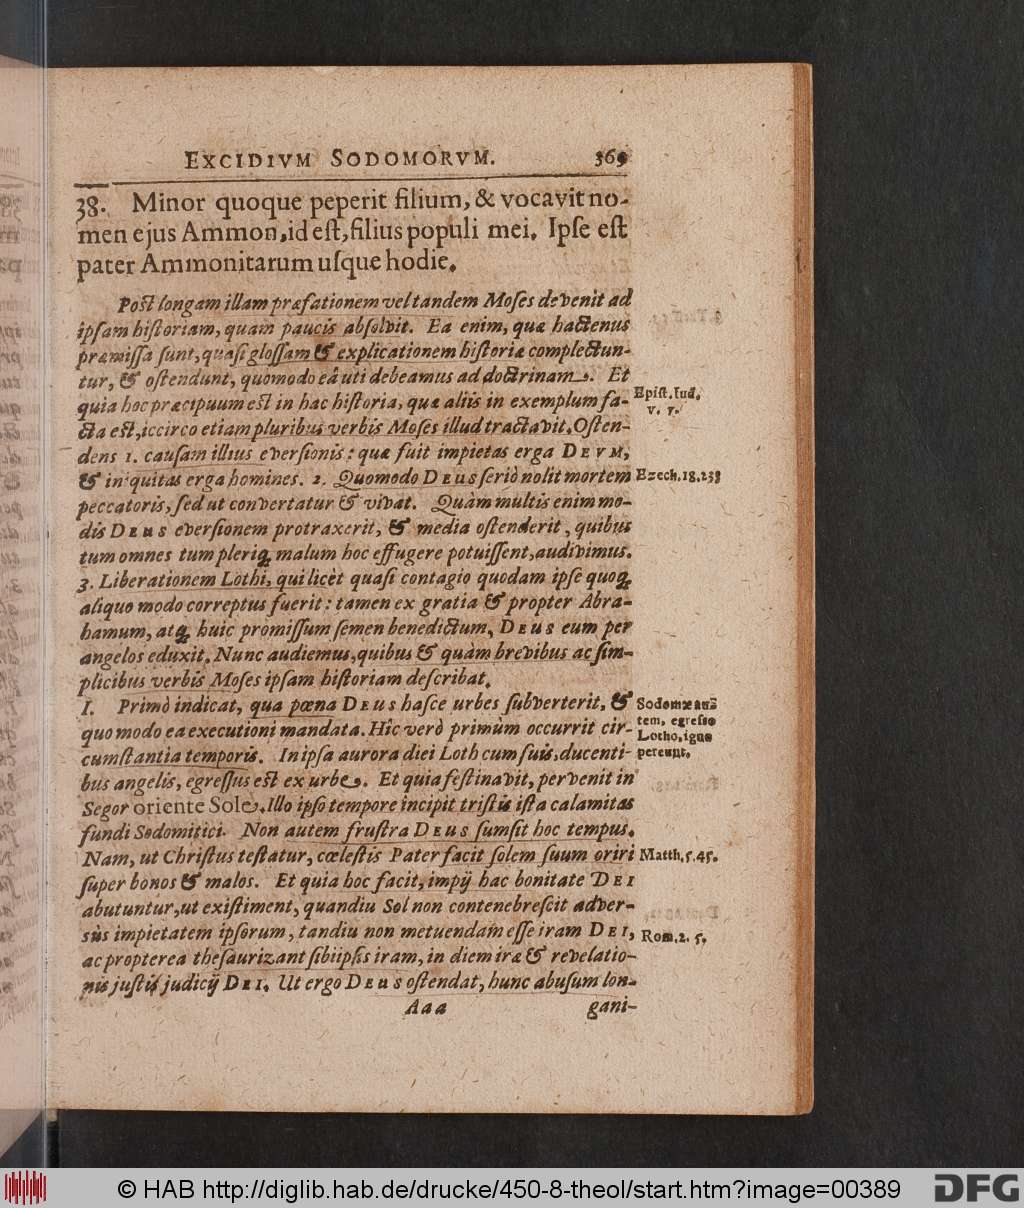 EXCIDIVM SODOMORVM. 369
38. Minor quoque peperit filium, & vocavit no-
men ejus Ammon, id eſt, filius populi mei. Ipſe eſt
pater Ammonitarum uſque hodie.
Poſt longam illam præfationem vel tandem Moſes devenit ad
ipſam hiſtoriam, quam paucis abſolvit. Ea enim, quæ hactenus
præmiſſa ſunt, quaſi gloſſam & explicationem hiſtoriæ complectun-
tur, & oſtendunt, quomodo eâ uti debeamus ad doctrinam. Et
quia hoc præcipuum eſt in hac hiſtoria, quæ aliis in exemplum fa-
Epiſt. Iud.
v. 7.
cta eſt, iccirco etiam pluribus verbis Moſes illud tractavit. Oſten-
dens 1. cauſam illius everſionis: quæ fuit impietas erga DEVM,
& iniquitas erga homines. 2. Quomodo DEUS ſeriò nolit mortem
Ezech. 18. 23
peccatoris, ſed ut convertatur & vivat. Quàm multis enim mo-
dis DEUS everſionem protraxerit, & media oſtenderit, quibus
tum omnes tum pleriq; malum hoc effugere potuiſſent, audivimus.
3. Liberationem Lothi, qui licèt quaſi contagio quodam ipſe quoq;
aliquo modo correptus fuerit: tamen ex gratia & propter Abra-
hamum, atq; huic promiſſum ſemen benedictum, DEUS eum per
angelos eduxit. Nunc audiemus, quibus & quàm brevibus ac ſim-
plicibus verbis Moſes ipſam hiſtoriam deſcribat.
I. Primò indicat, qua pœna DEUS haſce urbes ſubverterit, &
Sodomæ au-
tem, egreſſo
Lotho, igne
pereunt.
quomodo ea executioni mandata. Hîc verò primùm occurrit cir-
cumſtantia temporis. In ipſa aurora diei Loth cum ſuis, ducenti-
bus angelis, egreſſus eſt ex urbe. Et quia feſtinavit, pervenit in
Segor oriente Sole. Illo ipſo tempore incipit triſtis iſta calamitas
fundi Sodomitici. Non autem fruſtra DEUS ſumſit hoc tempus.
Nam, ut Chriſtus teſtatur, cœleſtis Pater facit ſolem ſuum oriri
Matth. 5. 45.
ſuper bonos & malos. Et quia hoc facit, impij hac bonitate DEI
abutuntur, ut exiſtiment, quandiu Sol non contenebreſcit adver-
sùs impietatem ipſorum, tandiu non metuendam eſſe iram DEI,
Rom. 2. 5.
ac propterea theſaurizant ſibiipſis iram, in diem iræ & revelatio-
nis juſti judicij DEI. Ut ergo DEUS oſtendat, hunc abuſum lon-
Aaa gani-
© HAB http://diglib.hab.de/drucke/450-8-theol/start.htm?image=00389
DFG